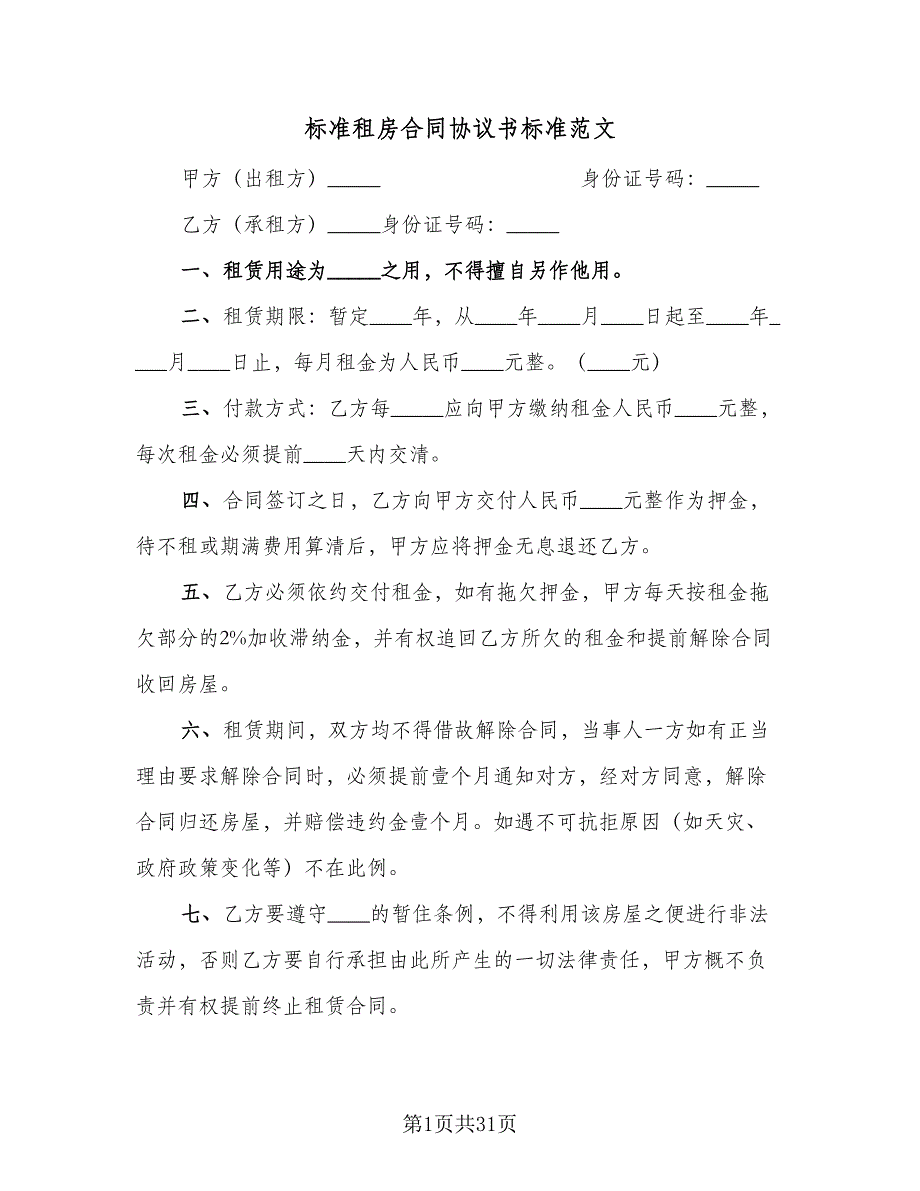 标准租房合同协议书标准范文
甲方（出租方）_____ 身份证号码：_____
乙方（承租方）_____身份证号码：_____
一、租赁用途为_____之用，不得擅自另作他用。
二、租赁期限：暂定____年，从____年____月____日起至____年_
___月____日止，每月租金为人民币____元整。（____元）
三、付款方式：乙方每_____应向甲方缴纳租金人民币____元整，
每次租金必须提前____天内交清。
四、合同签订之日，乙方向甲方交付人民币____元整作为押金，
待不租或期满费用算清后，甲方应将押金无息退还乙方。
五、乙方必须依约交付租金，如有拖欠押金，甲方每天按租金拖
欠部分的2%加收滞纳金，并有权追回乙方所欠的租金和提前解除合同
收回房屋。
六、租赁期间，双方均不得借故解除合同，当事人一方如有正当
理由要求解除合同时，必须提前壹个月通知对方，经对方同意，解除
合同归还房屋，并赔偿违约金壹个月。如遇不可抗拒原因（如天灾、
政府政策变化等）不在此例。
七、乙方要遵守____的暂住条例，不得利用该房屋之便进行非法
活动，否则乙方要自行承担由此所产生的一切法律责任，甲方概不负
责并有权提前终止租赁合同。
第1页共31页